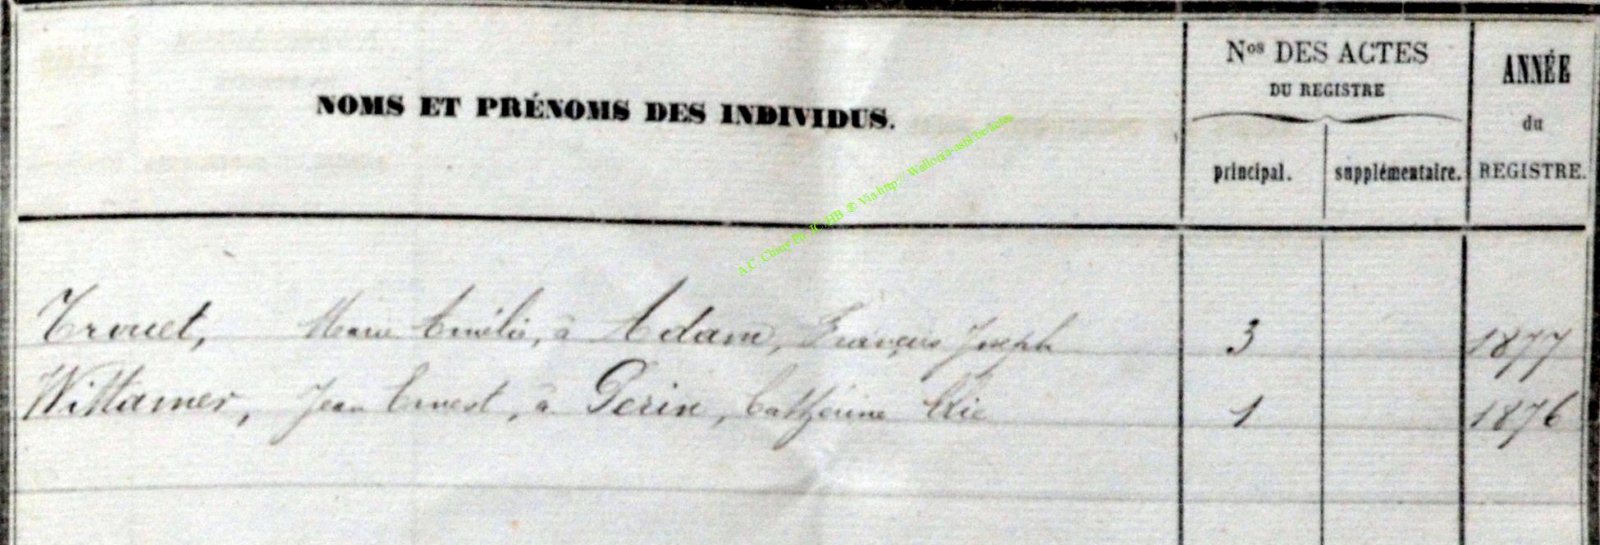 NOMS ET PRÉNOMS DES INDIVIDUS.
Nos DES ACTES
DU REGISTRE
principal. supplémentaire.
ANNÉE
du
REGISTRE.
Trouet, Marie Emélie, à Adam, François Joseph 3 1877
Wittamer, Jean Ernest, à Perin, Catherine 1 1876